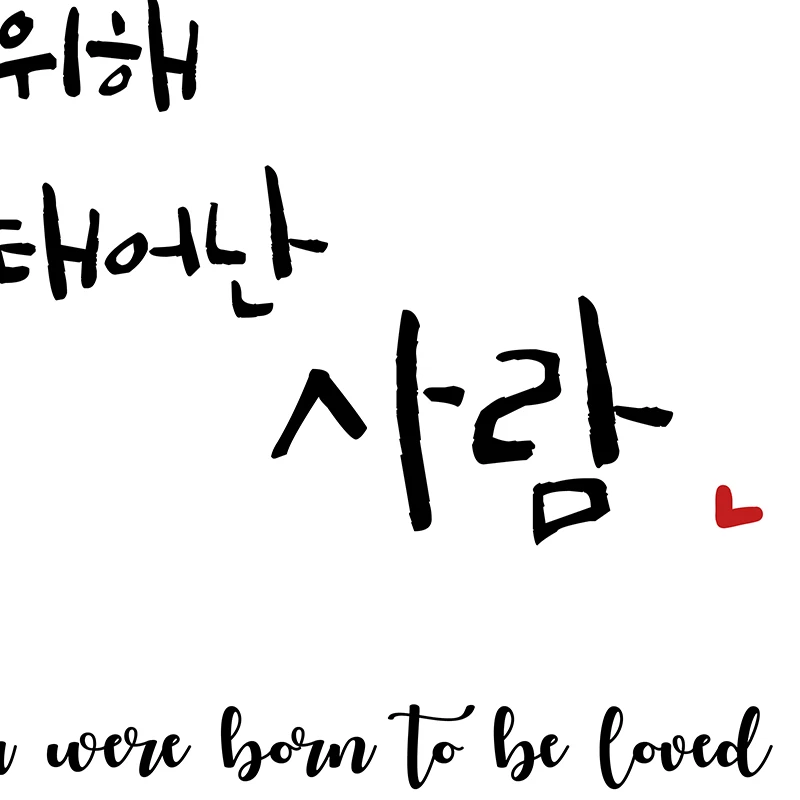 위해
태어난
사람
were born to be loved